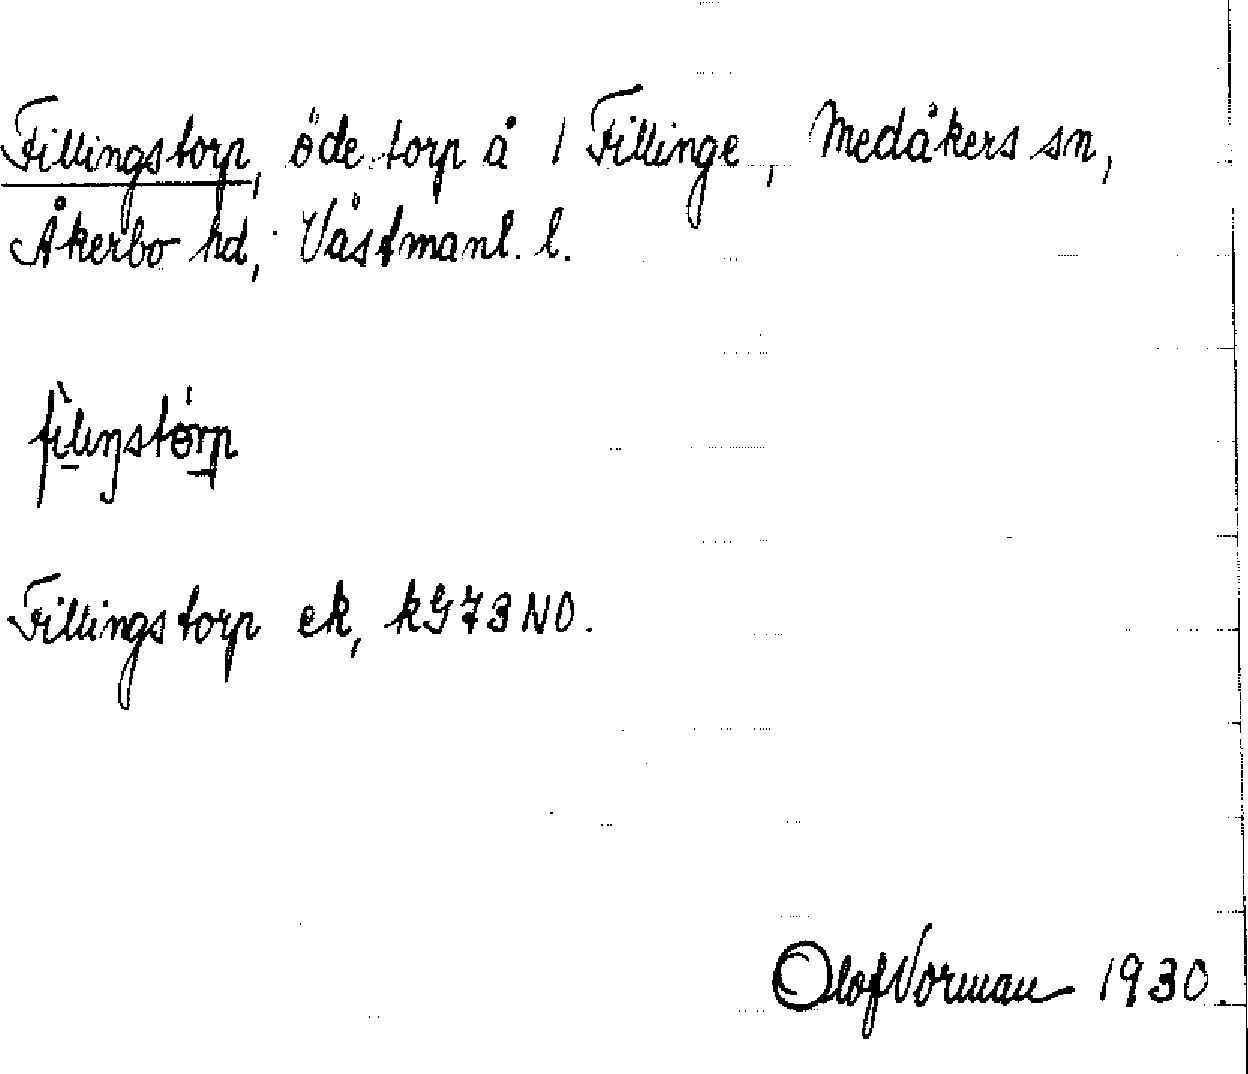 Fillingstorp, öde torp å 1 Fillinge, Medåkers sn,
Åkerbo hd, Västmanl. l.
fìliŋstórp
Fillingstorp ek, kG73NO.
Olof Vorman 1930.